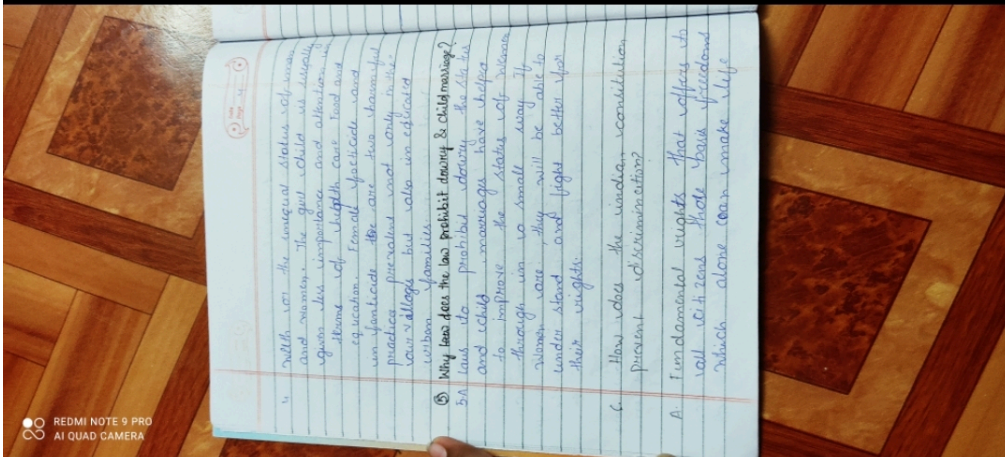 with on the unequal status of man
and women. The girl child is usually
given less importance and attention in
terms of health care Food and
education. Female foeticide and
infanticide are two harmful
practice prevalent not only in the
our villages but also in educated
urban families
⑤ Why does the law prohibit dowry & child marriage?
5.A laws to prohibit dowry the sta tus
and child marriages have helped
to improve the status of women
through in a small way If
women are they will be able to
under stand and fight better for
their rights.
6. How does the indian contitution
prevent discrimination?
A. Fundamental rights that offers to
all citi zens that basi freedoms
which alone can make life
REDMI NOTE 9 PRO
AI QUAD CAMERA